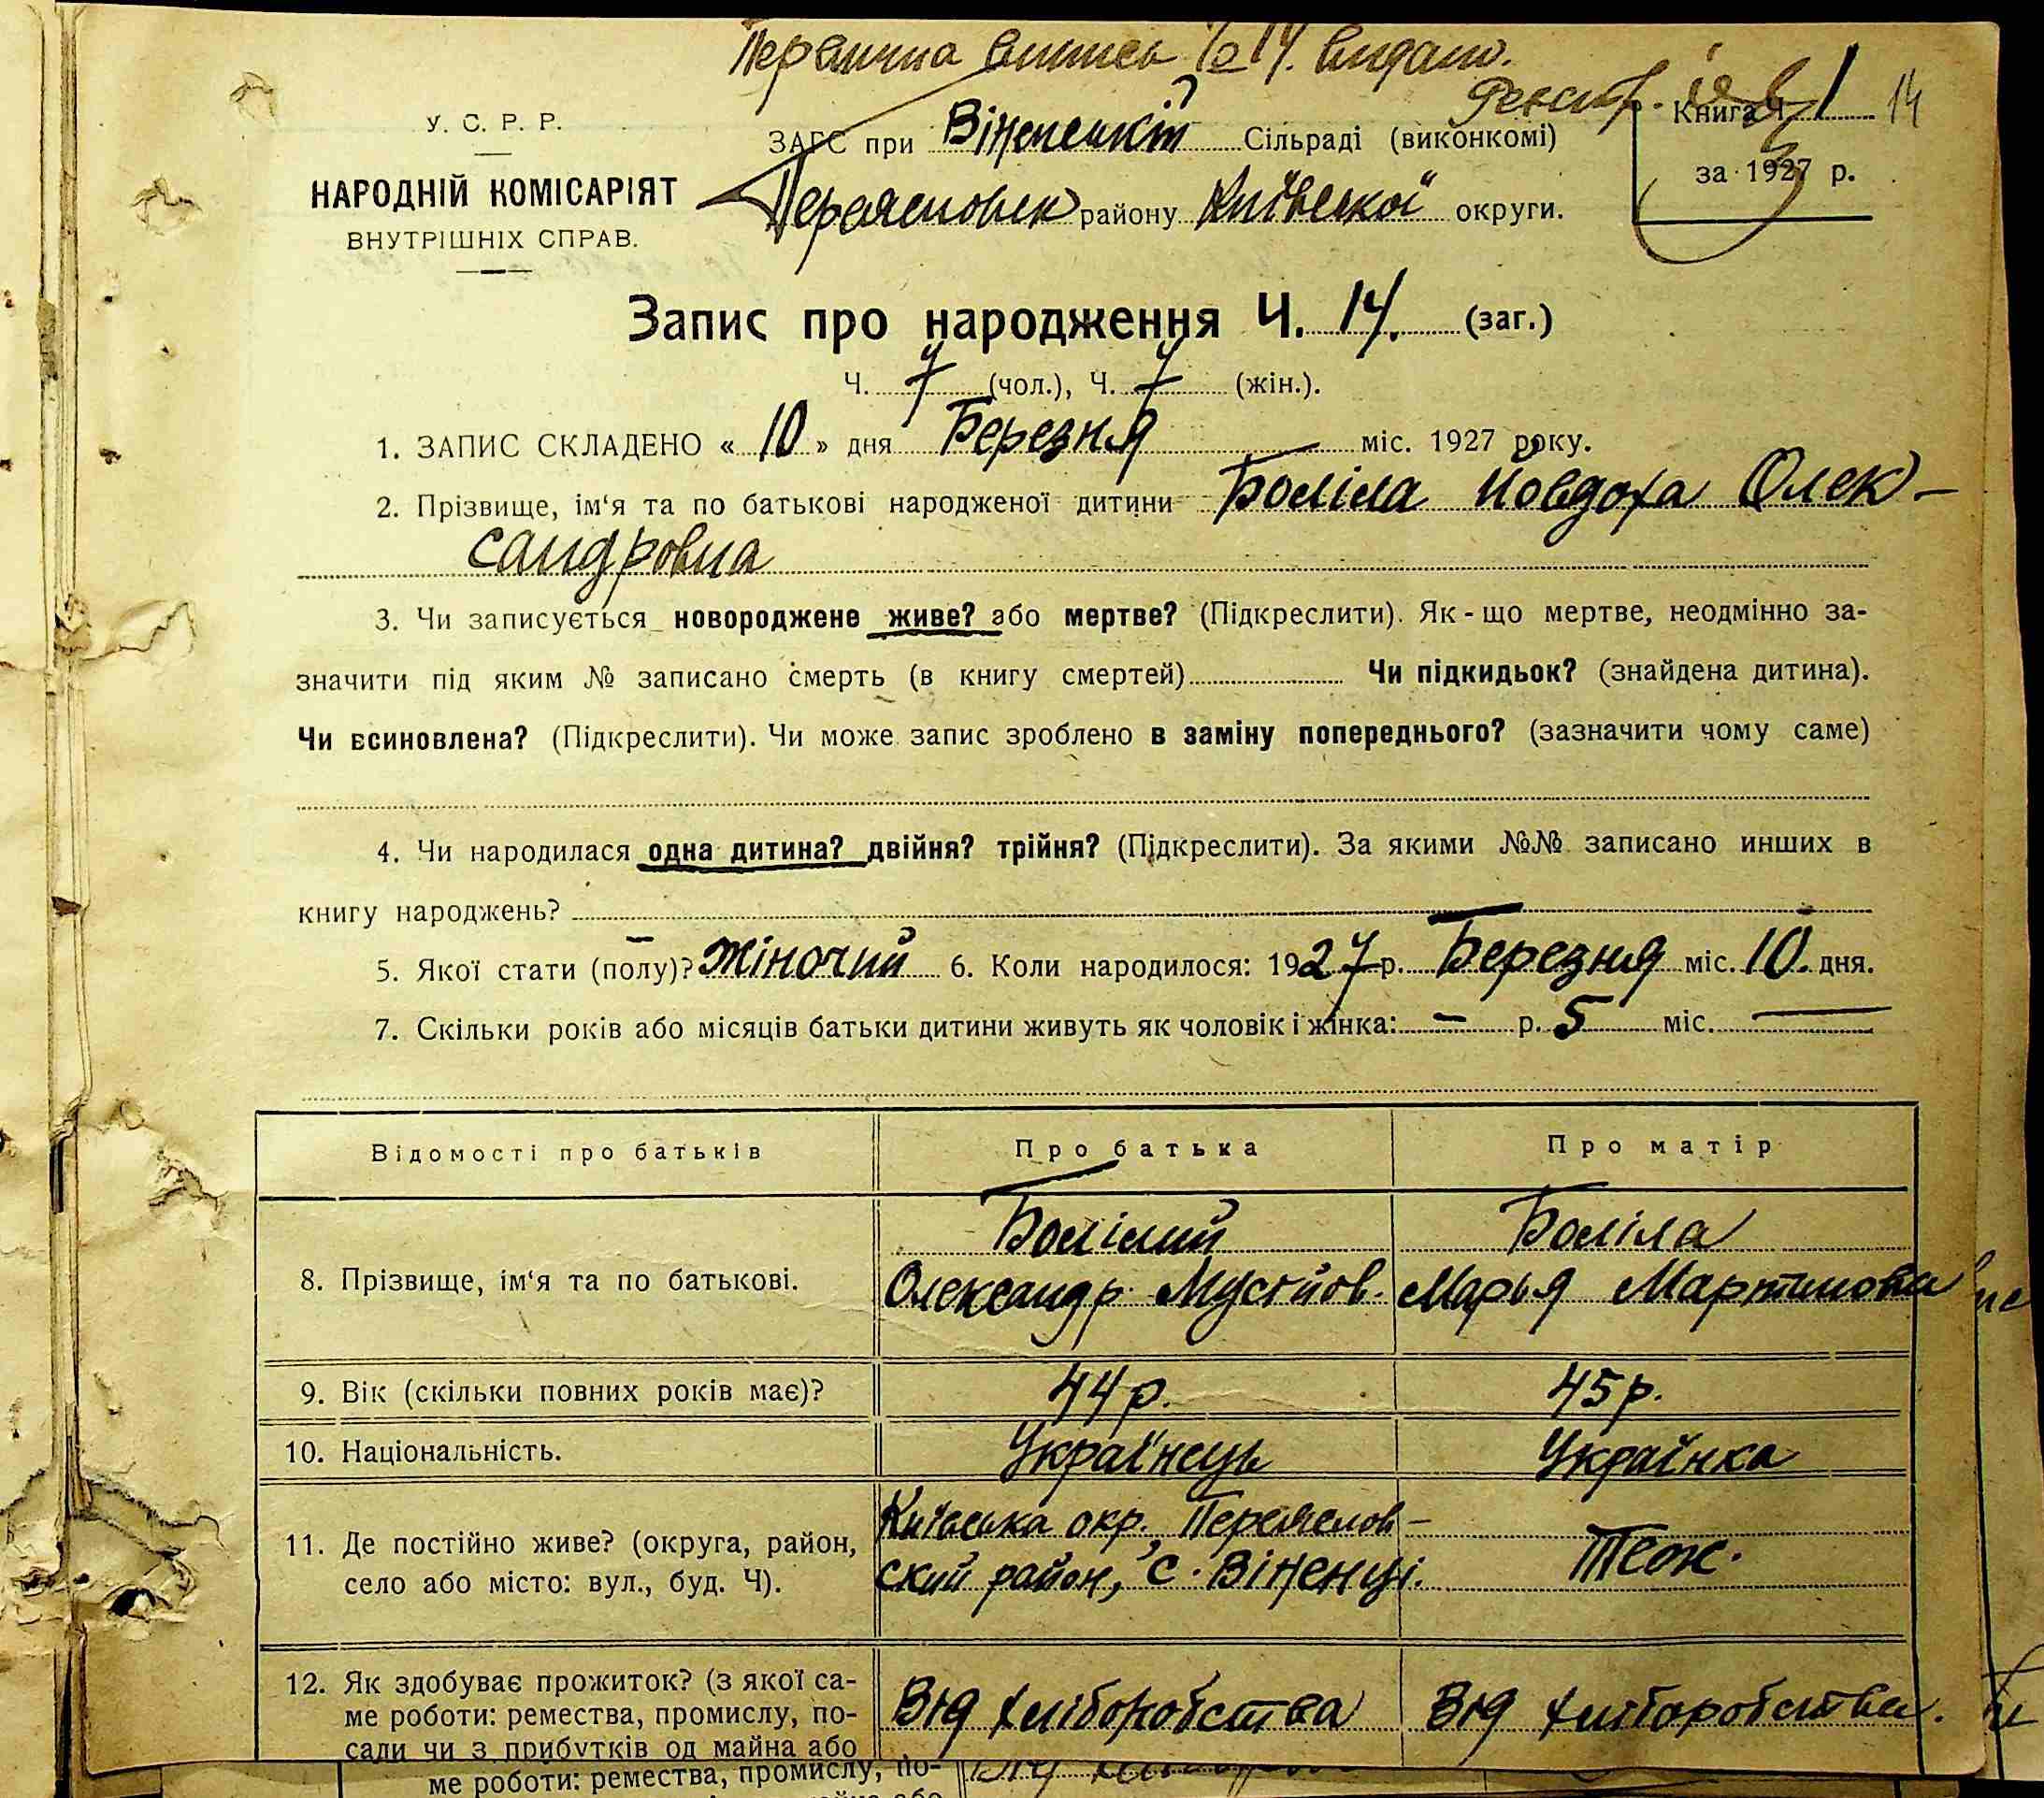 Первична випись № 14. видано.
У. С. Р. Р.
НАРОДНІЙ КОМІСАРІЯТ
ВНУТРІШНІХ СПРАВ.
ЗАГС при Віненській Сільраді (виконкомі)
Переясловск району Київської округи.
Книга Ч. 1 14
за 1927 р.
Запис про народження Ч. 14. (заг.)
Ч. 7 (чол.), Ч. 7 (жін.).
1. ЗАПИС СКЛАДЕНО « 10 » дня Березня міс. 1927 року.
2. Прізвище, ім'я та по батькові народженої дитини Боліла Йовдоха Олек-
сандровна
3. Чи записується новороджене живе? або мертве? (Підкреслити). Як-що мертве, неодмінно за-
значити під яким № записано смерть (в книгу смертей) Чи підкидьок? (знайдена дитина).
Чи всиновлена? (Підкреслити). Чи може запис зроблено в заміну попереднього? (зазначити чому саме)
4. Чи народилася одна дитина? двійня? трійня? (Підкреслити). За якими №№ записано инших в
книгу народжень?
5. Якої стати (полу)? Жіночий 6. Коли народилося: 1927 р. Березня міс. 10. дня.
7. Скільки років або місяців батьки дитини живуть як чоловік і жінка: — р. 5 міс. —
Відомості про батьків Про батька Про матір
8. Прізвище, ім'я та по батькові.
Болілий
Олександр Мусійов.
Боліла
Марья Мартиновна
9. Вік (скільки повних років має)? 44 р. 45 р.
10. Національність. Українець Українка
11. Де постійно живе? (округа, район,
село або місто: вул., буд. Ч).
Київська окр., Переяслов-
ский район, с. Віненці.
Теж.
12. Як здобуває прожиток? (з якої са-
ме роботи: ремества, промислу, по-
сади чи з прибутків од майна або
Від хліборобства Від хліборобства.
ме роботи: ремества, промислу, по-